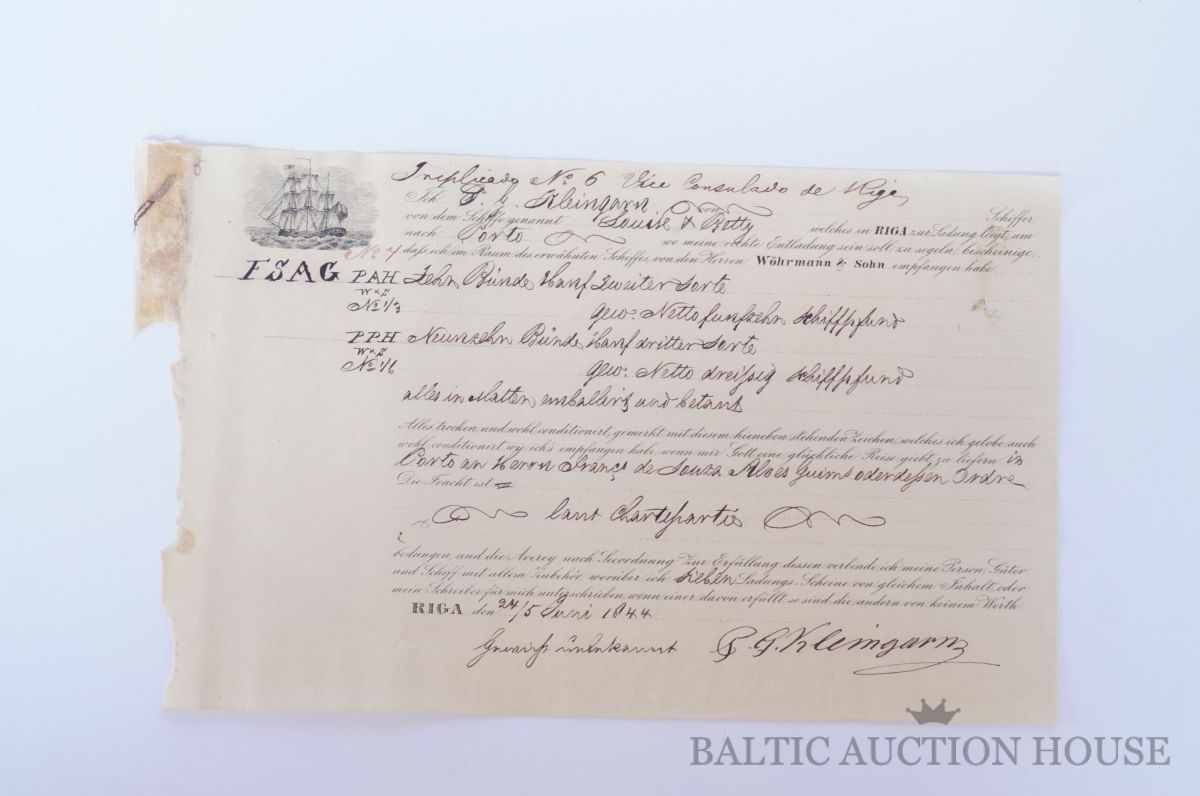 Triplicado No 6 Vice Consulado de Riga
Ich P. G. Kleingarn Schiffer
von dem Schiffe genannt Louise & Betty welches in RIGA zur Ladung liegt, um
nach Porto wo meine rechte Entladung sein soll, zu segeln, bescheinige,
No 4 daſs ich im Raum des erwähnten Schiffes, von den Herren Wöhrmann & Sohn empfangen habe
FSAG PAH Zehn Bünde Hanf Zweiter Sorte
W & S
No 1/3 Gew: Netto funfzehn Schiffpfund
PPH Neunzehn Bünde Hanf dritter Sorte
W & S
No 1/6 Gew: Netto dreiſsig Schiffpfund
alles in Matten emballirt und betaut
Alles trocken und wohl conditionirt, gemerkt mit diesem hieneben stehenden Zeichen, welches ich gelobe auch
wohl conditionirt wie ich's empfangen habe, wenn mir Gott eine glückliche Reise giebt, zu liefern in
Porto an Herrn Franç de Souza Alves Guims oder deſsen Ordre
Die Fracht ist
laut Chartepartie
bedungen, und die Averey nach Seeordnung. Zur Erfüllung dessen verbinde ich meine Person, Güter
und Schiff mit allem Zubehör, worüber ich sieben Ladungs-Scheine von gleichem Inhalt, oder
mein Schreiber für mich unterschrieben, wenn einer davon erfüllt, so sind die andern von keinem Werth.
RIGA den 24/5 Juni 1844
Gewicht unbekannt P. G. Kleingarn
BALTIC AUCTION HOUSE